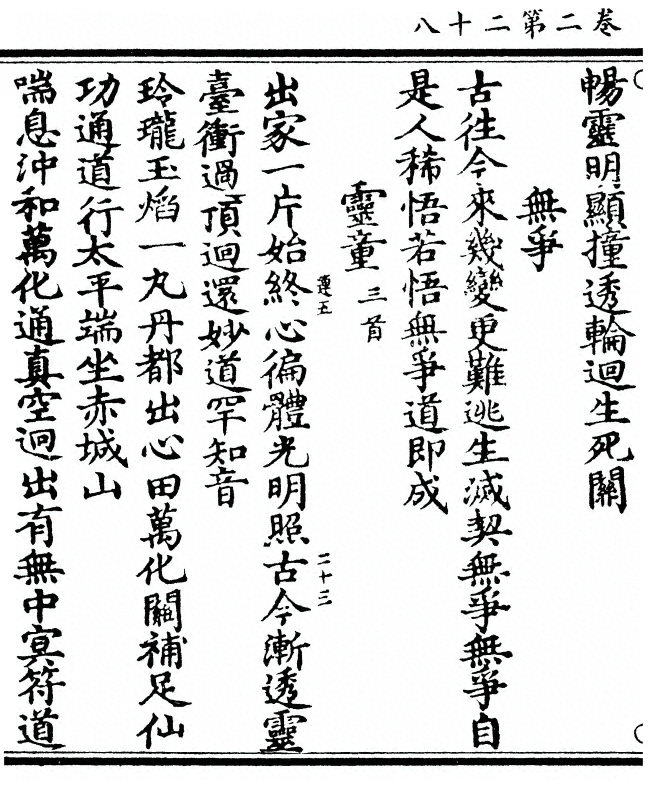 卷二第二十八
暢靈明顯撞透輪迴生死關
無爭
古往今來幾變更難逃生滅契無爭無爭自
是人稀悟若悟無爭道即成
靈童三首
蓮五
二十三
出家一片始終心徧體光明照古今漸透靈
臺衝過頂迴還妙道罕知音
玲瓏玉焰一丸丹都出心田萬化關補足仙
功通道行太平端坐赤城山
喘息沖和萬化通真空迥出有無中冥符道